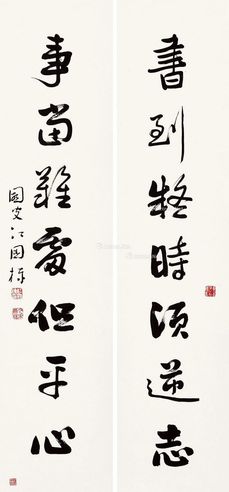 書到疑時須逆志
事當難處但平心
國安江國棟